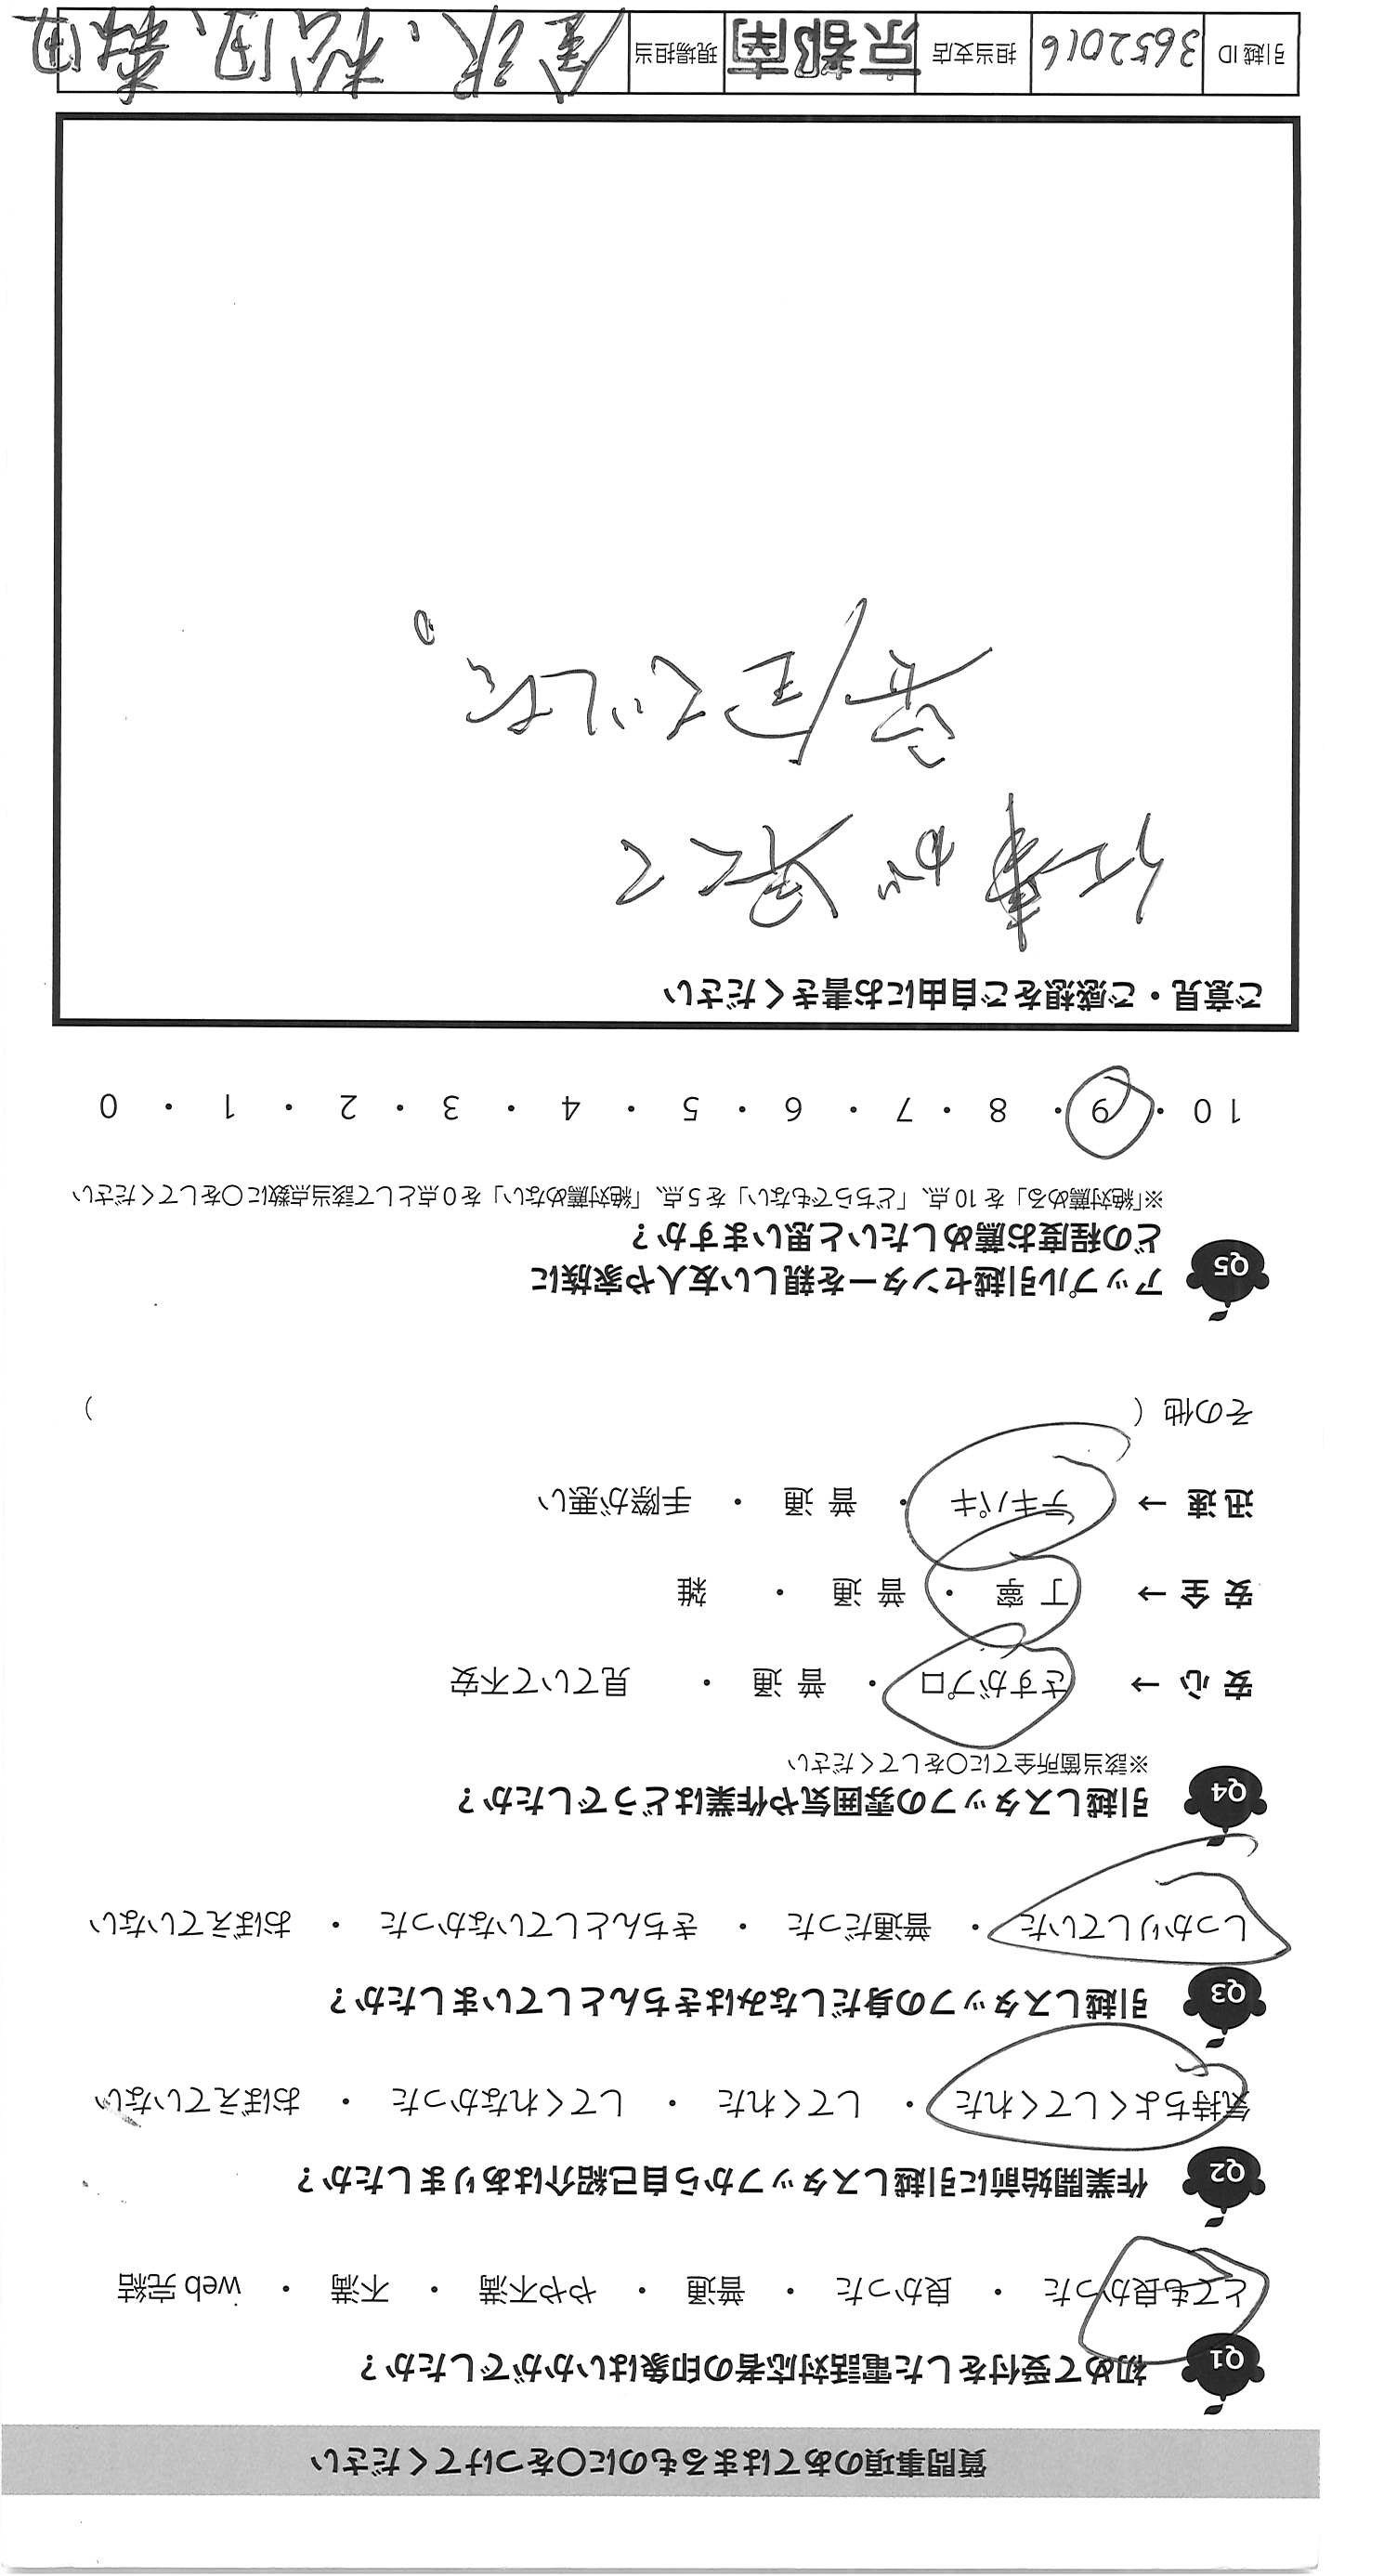 質問事項のあてはまるものに○をつけてください
Q1 初めて受付をした電話対応者の印象はいかがでしたか？
とても良かった ・ 良かった ・ 普通 ・ やや不満 ・ 不満 ・ web 完結
Q2 作業開始前に引越しスタッフから自己紹介はありましたか？
気持ちよくしてくれた ・ してくれた ・ してくれなかった ・ おぼえていない
Q3 引越しスタッフの身だしなみはきちんとしていましたか？
しっかりしていた ・ 普通だった ・ きちんとしていなかった ・ おぼえていない
Q4 引越しスタッフの雰囲気や作業はどうでしたか？
※該当箇所全てに○をしてください
安 心 → さすがプロ ・ 普 通 ・ 見ていて不安
安 全 → 丁 寧 ・ 普 通 ・ 雑
迅 速 → テキパキ ・ 普 通 ・ 手際が悪い
その他（ ）
Q5 アップル引越センターを親しい友人や家族に
どの程度お薦めしたいと思いますか？
※「絶対薦める」を 10 点、「どちらでもない」を 5 点、「絶対薦めない」を 0 点として該当点数に○をしてください
10 ・ 9 ・ 8 ・ 7 ・ 6 ・ 5 ・ 4 ・ 3 ・ 2 ・ 1 ・ 0
ご意見・ご感想をご自由にお書きください
仕事が早くて
でした。
引越 ID 3652016 担当支店 京都南 現場担当 金沢、松田、森田